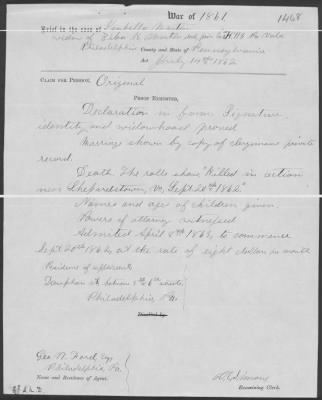 War of 1861.
1468
Brief in the case of Isabella
widow of Co. H 118 Pa Vols
Philadelphia County and State of Pennsylvania
Act July 14th 1862
CLAIM FOR PENSION. Original
PROOF EXHIBITED.
Declaration in form. Signature
identity and widowhood proved.
Marriage shown by copy of clergymans private
record.
Death. The rolls show "Killed in action
near Shepardstown, Va, Sept. 20th 1862."
Names and ages of children given.
Powers of attorney witnessed
Admitted April 8th 1863, to commence
Sept 20th 1862, at the rate of eight dollars a month
Residence of applicant
Dauphin st. between 5th & 6th
Philadelphia Pa.
Geo. W. Esq
Philadelphia, Pa.
Name and Residence of Agent.
Examining Clerk.